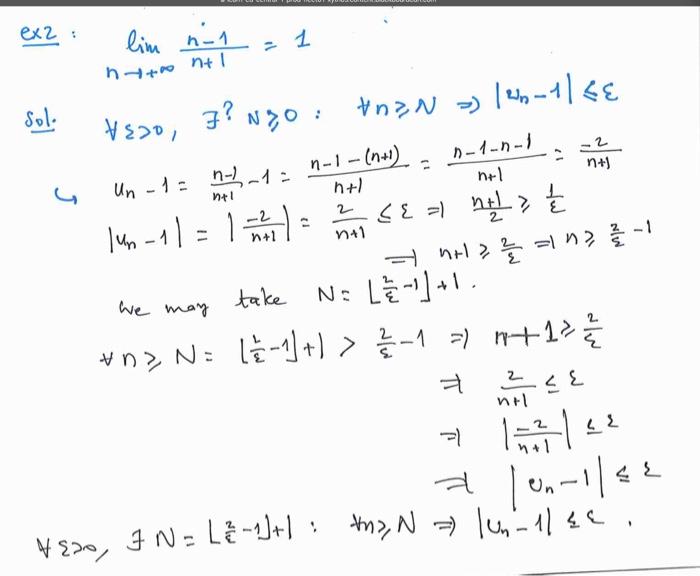 ex2 : lim n→+∞ n-1/n+1 = 1
Sol. ∀ε>0, ∃? N≥0 : ∀n≥N ⇒ |un-1| ≤ ε
↳ un - 1 = n-1/n+1 - 1 = n-1-(n+1)/n+1 = n-1-n-1/n+1 = -2/n+1
|un - 1| = |-2/n+1| = 2/n+1 ≤ ε ⇒ n+1/2 ≥ 1/ε
⇒ n+1 ≥ 2/ε ⇒ n ≥ 2/ε - 1
We may take N = ⌊2/ε - 1⌋ + 1.
∀n ≥ N = ⌊2/ε - 1⌋ + 1 > 2/ε - 1 ⇒ n+1 ≥ 2/ε
⇒ 2/n+1 ≤ ε
⇒ |-2/n+1| ≤ ε
⇒ |un - 1| ≤ ε
∀ε>0, ∃ N = ⌊2/ε - 1⌋ + 1 : ∀n ≥ N ⇒ |un - 1| ≤ ε .